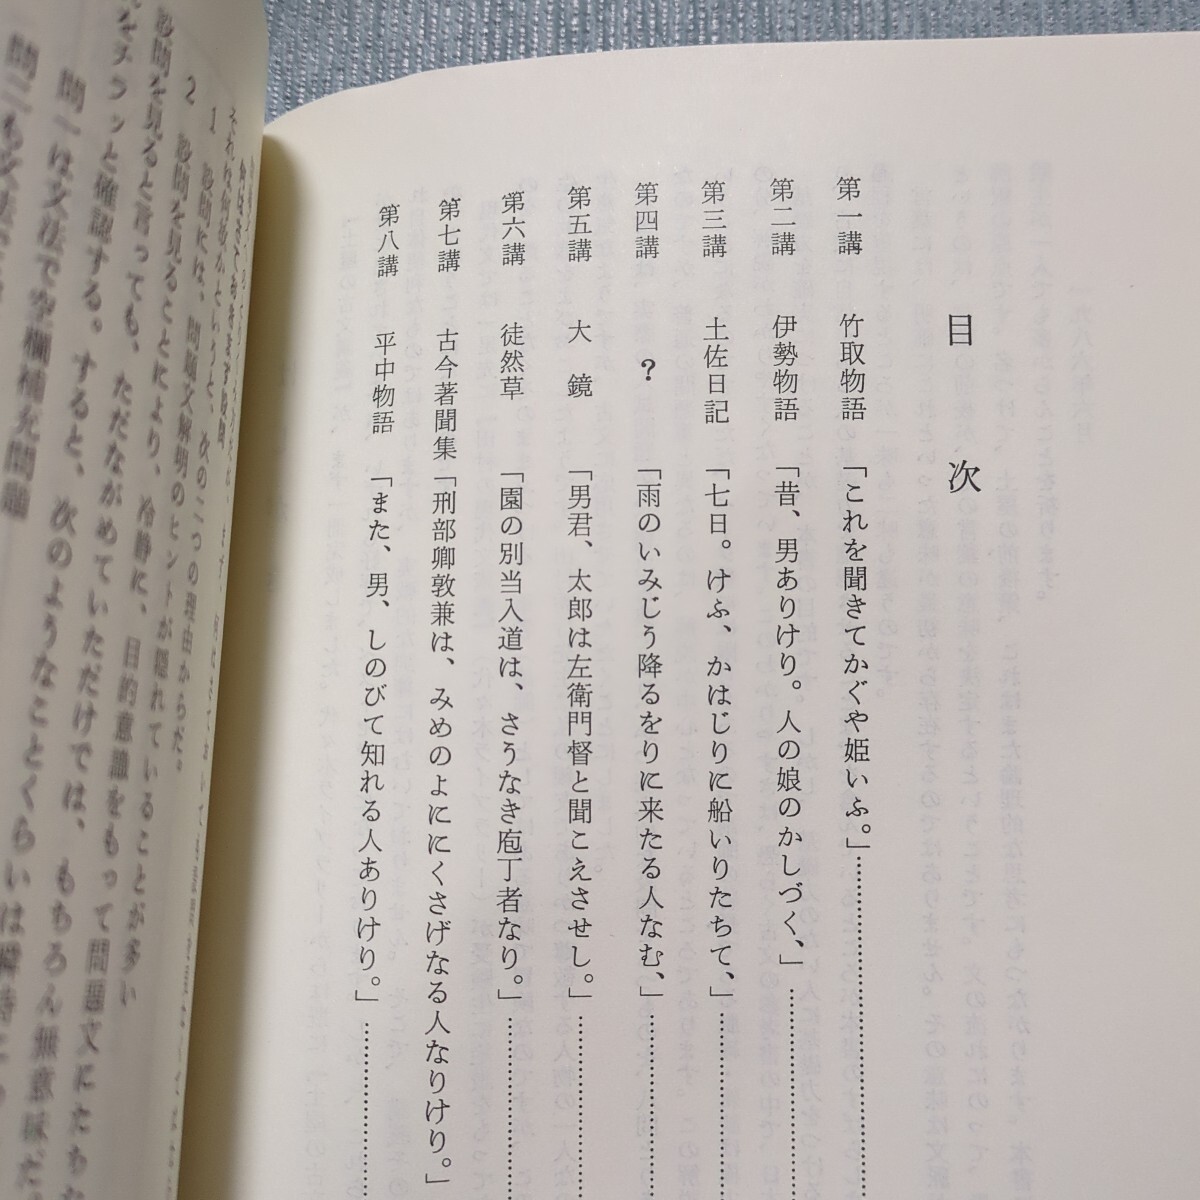 目次
第一講 竹取物語 「これを聞きてかぐや姫いふ。」
第二講 伊勢物語 「昔、男ありけり。人の娘のかしづく、」
第三講 土佐日記 「七日。けふ、かはじりに船いりたちて、」
第四講 ? 「雨のいみじう降るをりに来たる人なむ、」
第五講 大鏡 「男君、太郎は左衛門督と聞こえさせし。」
第六講 徒然草 「園の別当入道は、さうなき庖丁者なり。」
第七講 古今著聞集 「刑部卿敦兼は、みめのよににくさげなる人なりけり。」
第八講 平中物語 「また、男、しのびて知れる人ありけり。」
1 設問には、問題文解明のヒントが隠れていることが多い
2 設問を見ることにより、冷静に、目的意識をもって問題文にたち
設問を見ると言っても、ただながめていただけでは、もちろん無意味だ。
をチラッと確認する。すると、次のようなことくらいは瞬時に
問一は文法で空欄補充問題